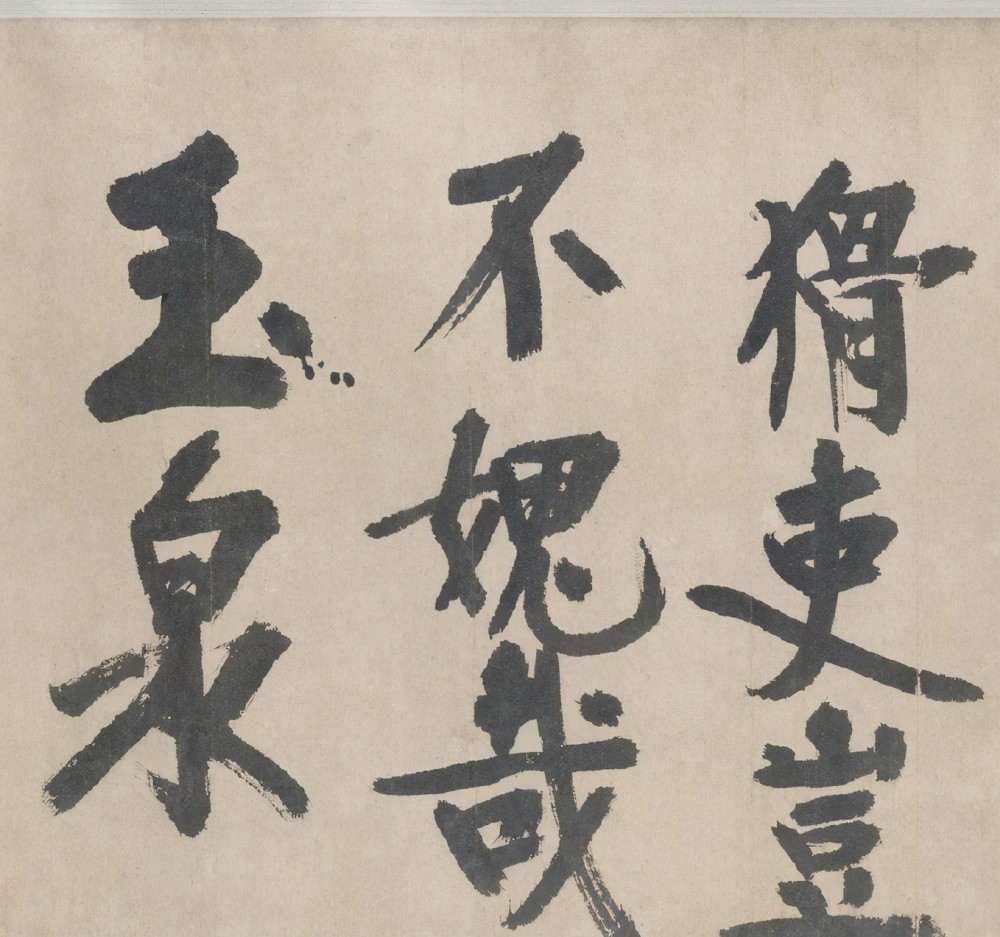 猾吏豈
不媿哉
玉泉